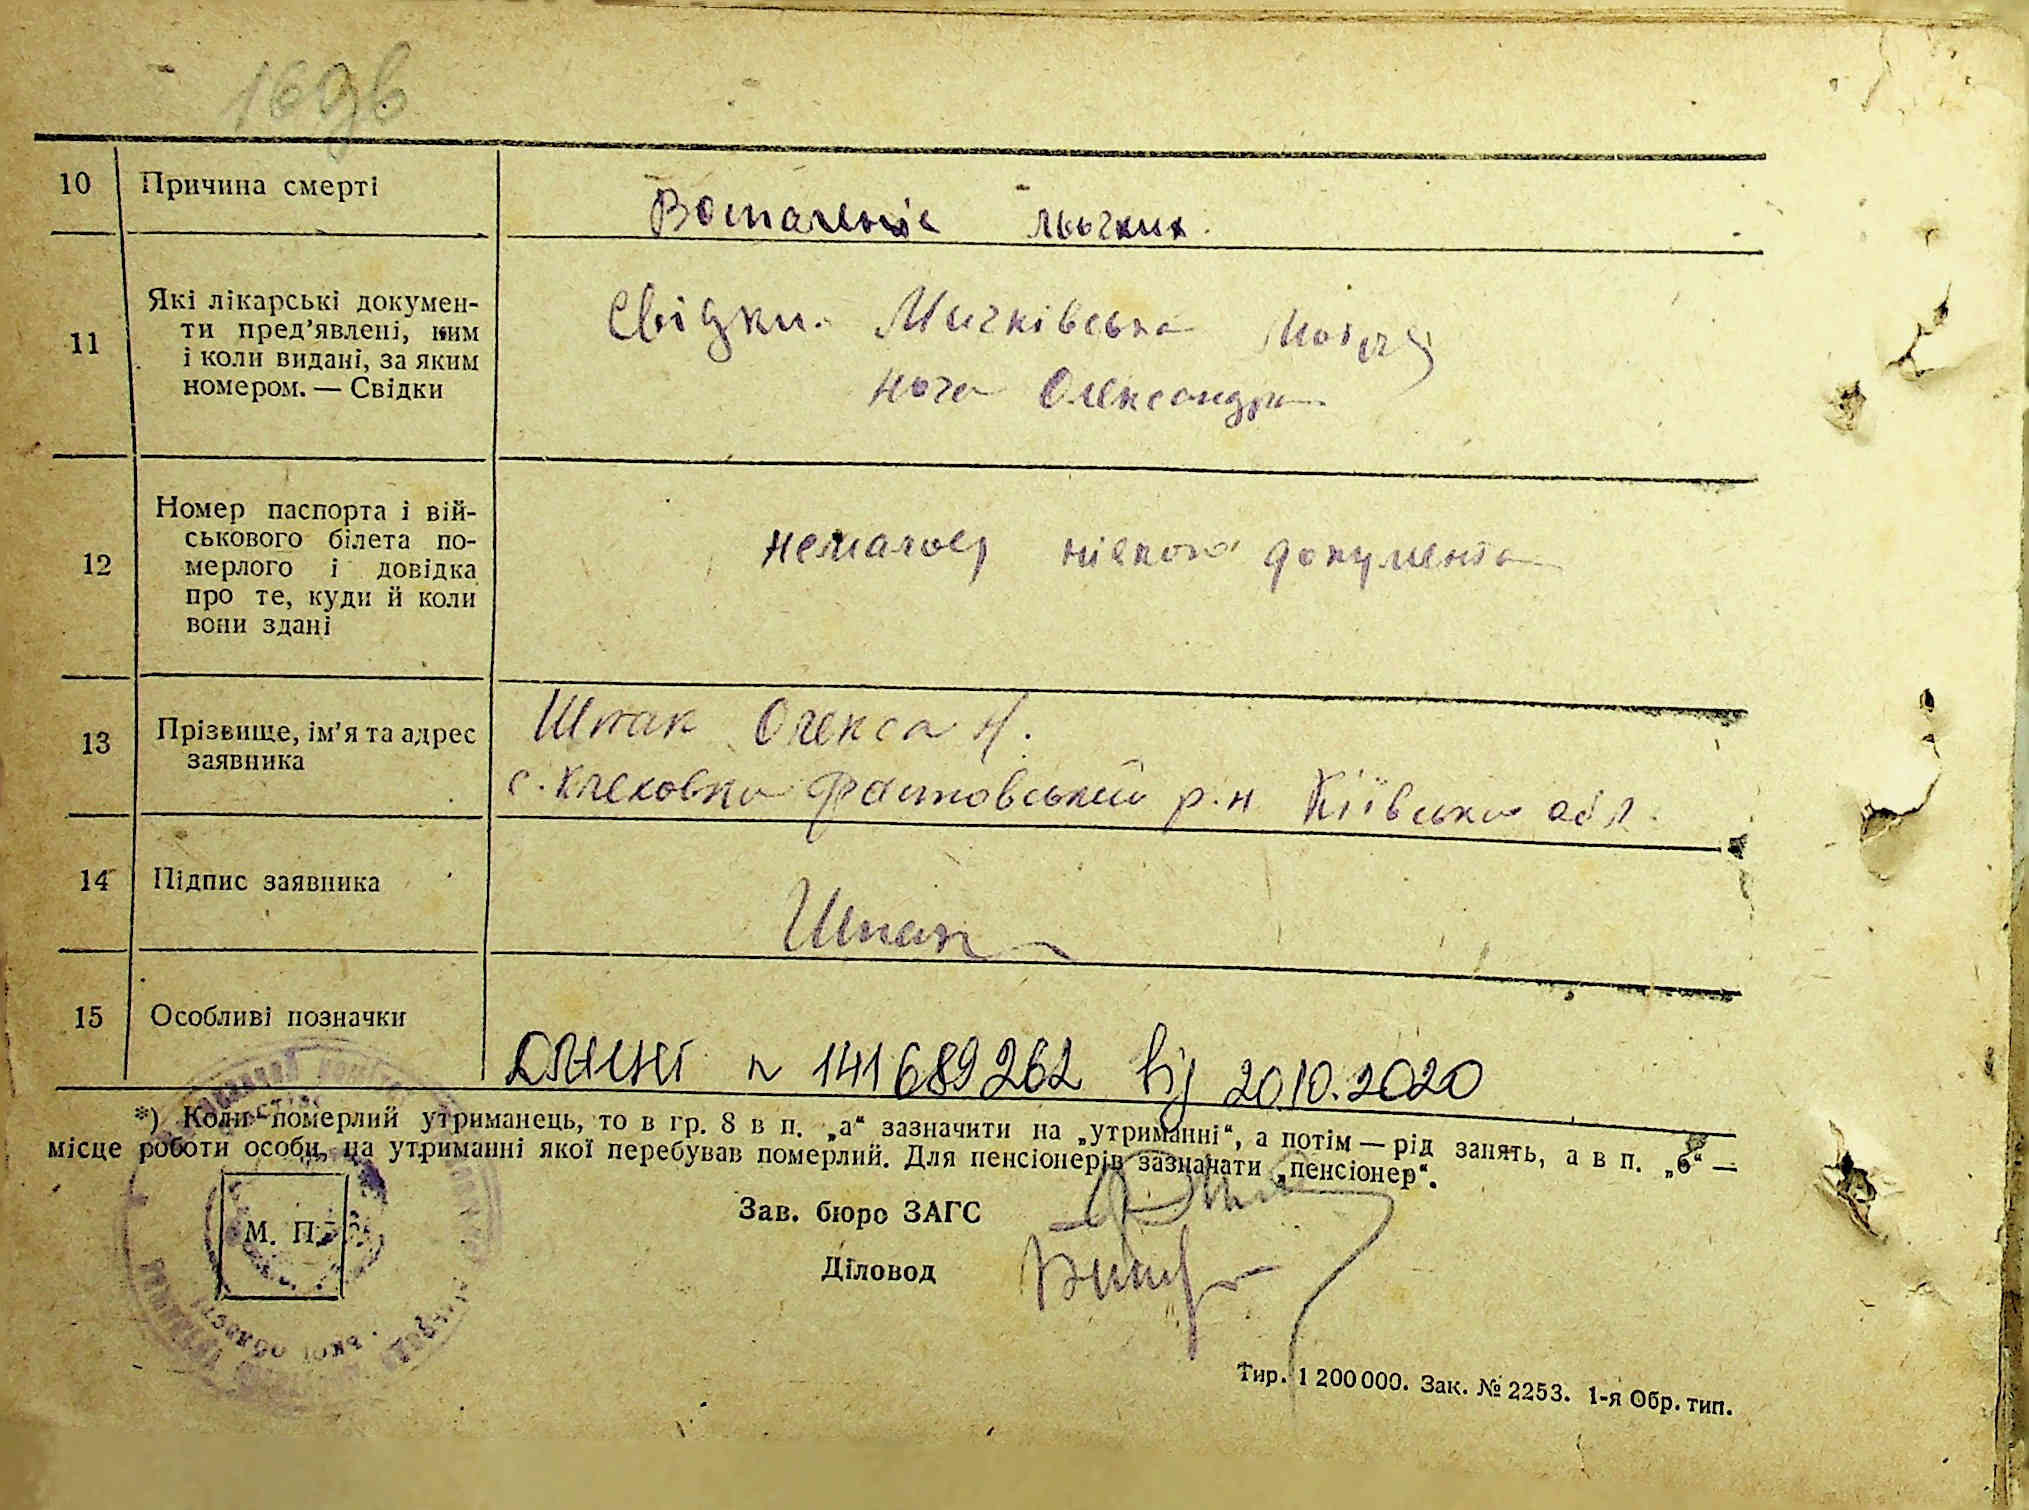 169б
10 Причина смерті
Воспаленіє льогких.
11 Які лікарські докумен-
ти пред’явлені, ким
і коли видані, за яким
номером. — Свідки
Свідки. Мичківська
Ноча Олександра
12 Номер паспорта і вій-
ськового білета по-
мерлого і довідка
про те, куди й коли
вони здані
немалоєј ніякого документа
13 Прізвище, ім’я та адрес
заявника
Шпак Олекса Н.
с. Клеховка Фастовський р.н Київська обл.
14 Підпис заявника
Шпак
15 Особливі позначки
ДРАЦСГ № 141689262 від 20.10.2020
*) Коли померлий утриманець, то в гр. 8 в п. „а“ зазначити на „утриманні“, а потім — рід занять, а в п. „б“ —
місце роботи особи, на утриманні якої перебував померлий. Для пенсіонерів зазначати „пенсіонер“.
Зав. бюро ЗАГС
М. П.
Діловод
Тир. 1 200 000. Зак. № 2253. 1-я Обр. тип.